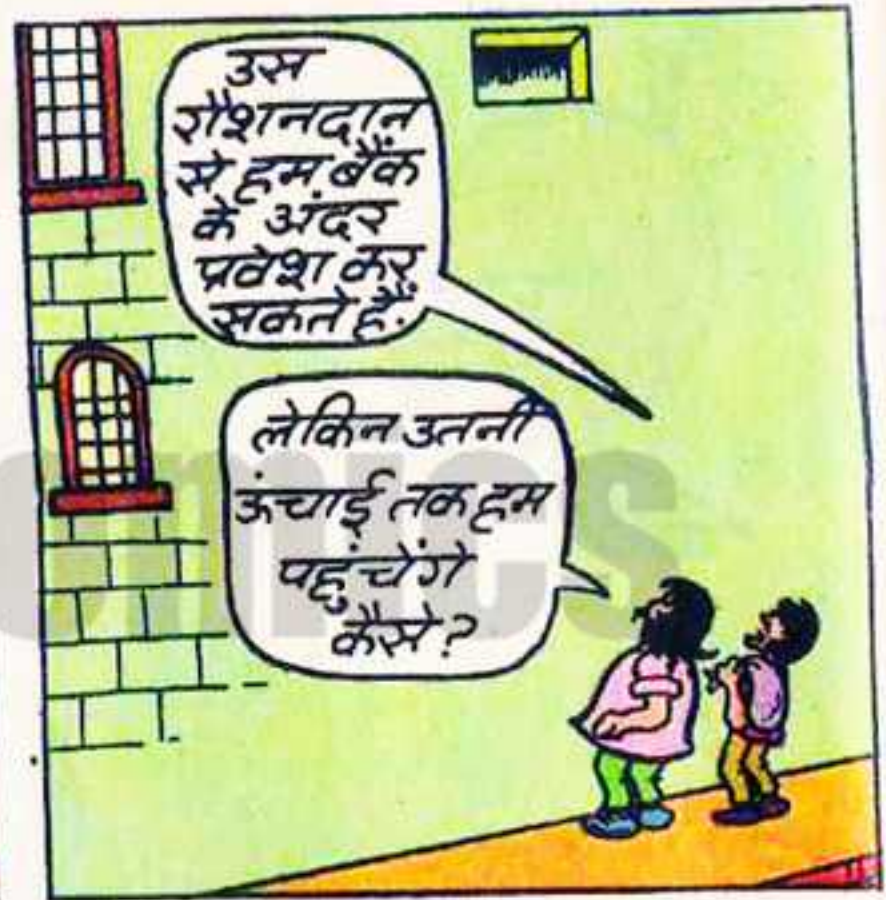 उस
रौशनदान
से हम बैंक
के अंदर
प्रवेश कर
सकते हैं.
लेकिन उतनी
ऊंचाई तक हम
पहुंचेंगे
कैसे?